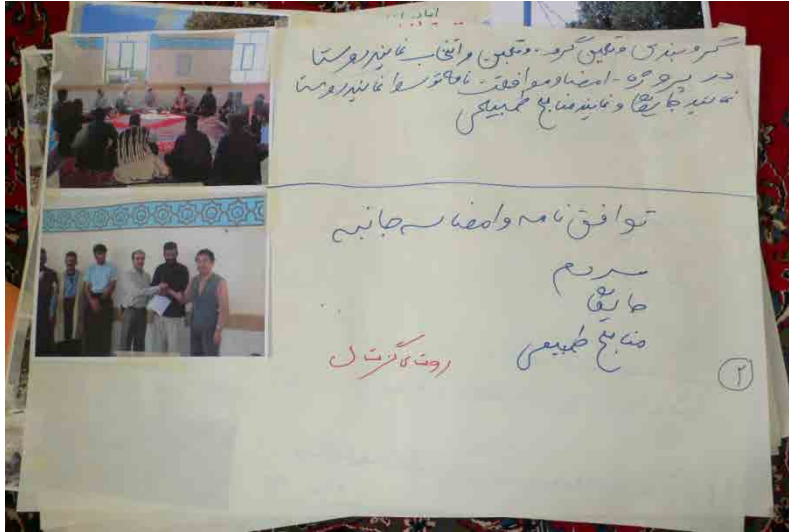 گروبندی و تعیین گروه - و تعیین و انتخاب نمایندروستا
در پروژه - امضاو موافقت نامه توسط نمایندروستا
نمایند جایکا و نمایندمنابع طبیعی
توافق نامه وامضا سه جانبه
مردم
جایکا
منابع طبیعی
روستای گزستان
۲